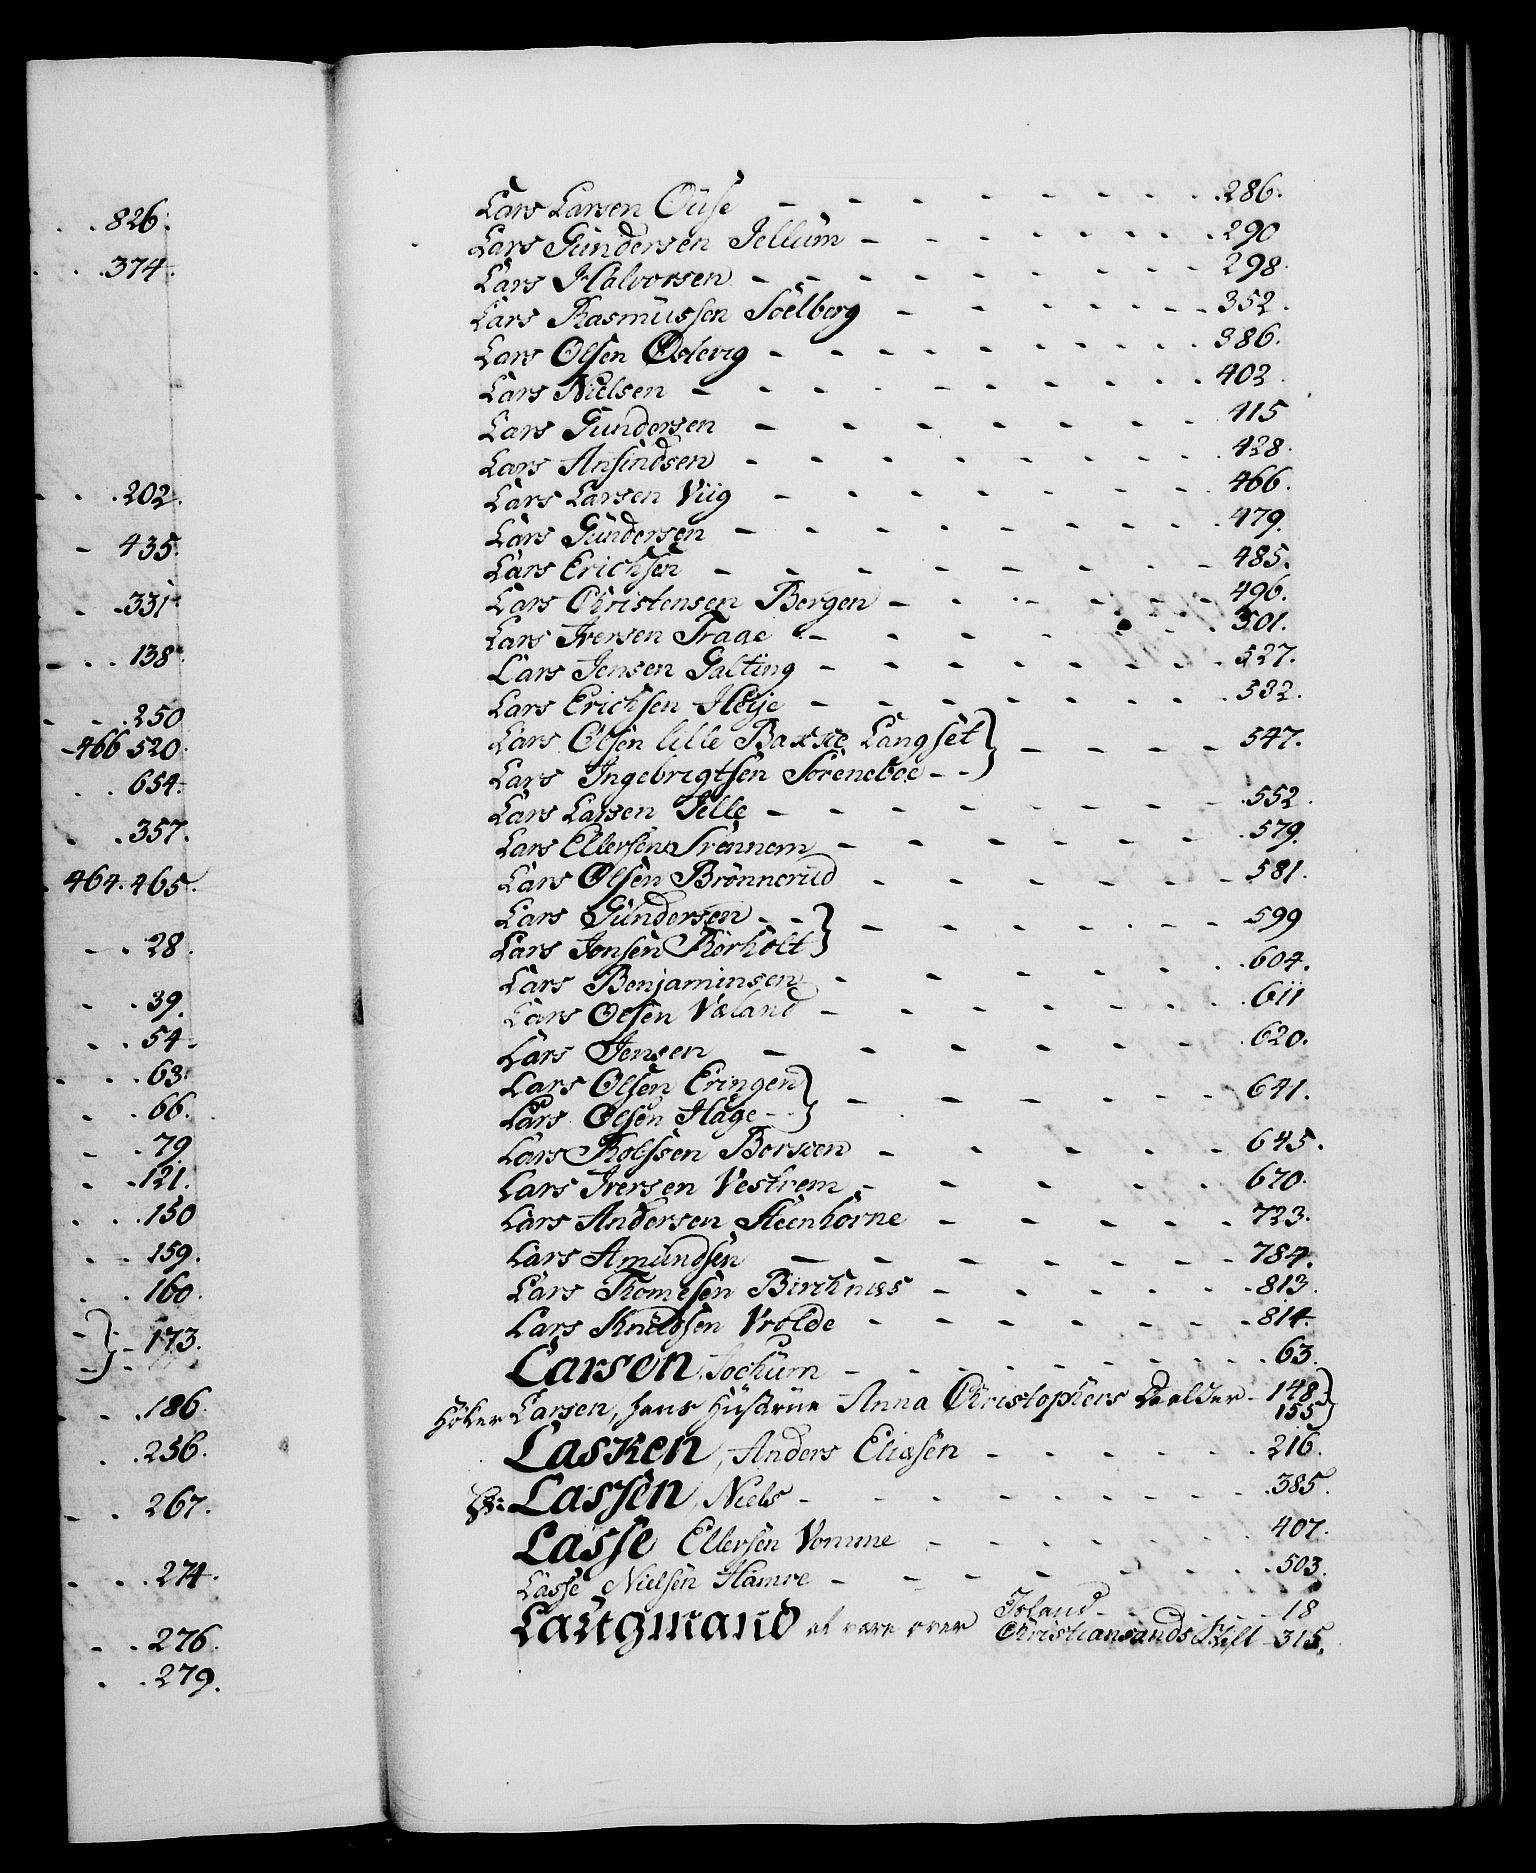 826.
374.
202.
435.
331
138
250
466 520.
654.
357.
464. 465.
28.
39.
54
63.
66.
79
121.
150
159.
160.
173.
186.
256.
267.
274.
276.
279.
Lars Larsen Ouse 286.
Lars Gundersen Jellum 290
Lars Halvorsen 298.
Lars Rasmussen Soelberg 352.
Lars Olsen Osberg 386.
Lars Nielsen 403
Lars Gundersen 415
Lars Ansindsen 428.
Lars Larsen Viig 466.
Lars Gundersen 479.
Lars Erichsen 485.
Lars Christensen Bergen 496.
Lars Iversen Traae 501.
Lars Jensen Galting 527.
Lars Erichsen Høije 532.
Lars Olsen lille Baxke Langset } 547.
Lars Ingebrigtsen Soreneboe
Lars Larsen Jelle 552.
Lars Ellersen Srennem 579.
Lars Olsen Brönnerud 581.
Lars Gundersen } 599
Lars Jonsen Kierholt
Lars Benjaminsen 604.
Lars Olsen Væland 611
Lars Jensen 620.
Lars Olsen Eringen } 641.
Lars Olsen Hage
Lars Rolfsen Borsven 645.
Lars Iversen Vestrem 670.
Lars Andersen Steenhorne 723.
Lars Amundsen 784.
Lars Thomesen Birchnæs 813.
Lars Knudsen Vrolde 814
Larsen, Jochum 63.
Höker Larsen, hans Hustrue Anna Christophers Datter 148. }
155
Lasken, Anders Eliæsen 216.
Hr: Lassen, Niels 385.
Lasse Ellersen Vomme 407.
Lasse Nielsen Hamre 503.
Island 18
Laugmand at være over Christiansands Stift 315.